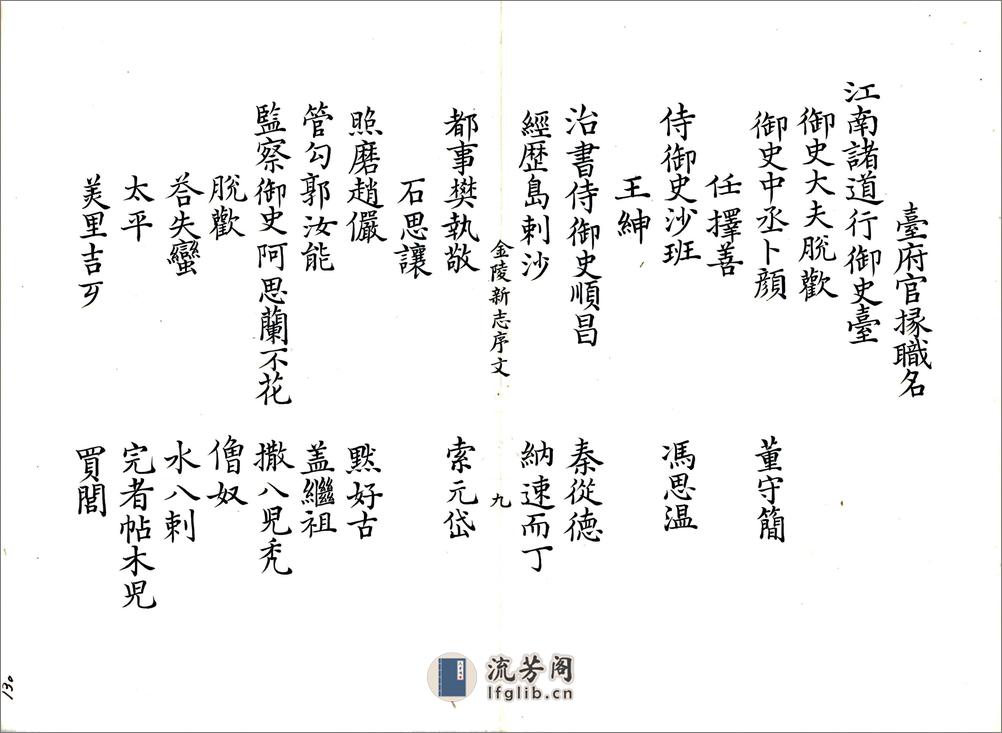 臺府官掾職名
江南諸道行御史臺
御史大夫脫歡
御史中丞卜顔 董守簡
任擇善
侍御史沙班 馮思温
王紳
治書侍御史順昌 秦從德
經歷島剌沙 納速而丁
金陵新志序文 九
都事樊執敬 索元岱
石思讓
照磨趙儼 黙好古
管勾郭汝能 盖繼祖
監察御史阿思蘭不花 撒八児秃
脫歡 僧奴
荅失蠻 水八剌
太平 完者帖木児
美里吉 買閭
130
流芳阁
lfglib.cn